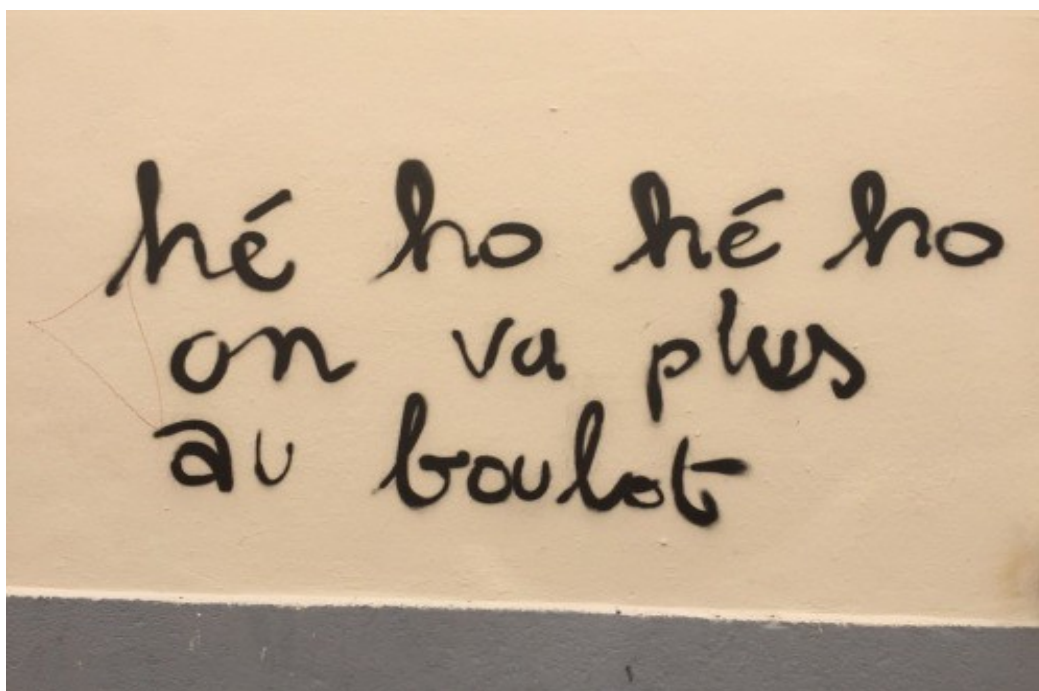 hé ho hé ho
on va plus
au boulot